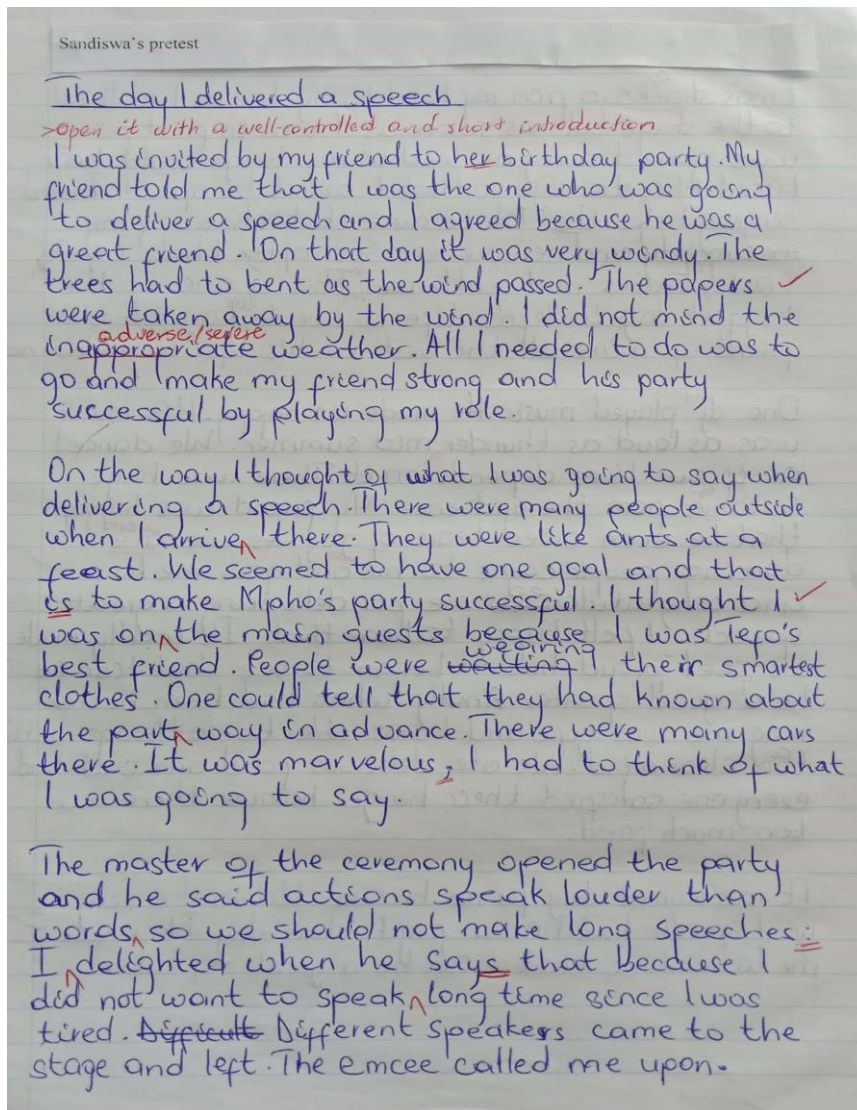 Sandiswa`s pretest
The day I delivered a speech
>open it with a well-controlled and short introduction
I was invited by my friend to her birthday party. My
friend told me that I was the one who was going
to deliver a speech and I agreed because he was a
great friend. On that day it was very windy. The
trees had to bent as the wind passed. The papers
were taken away by the wind. I did not mind the
adverse/severe
inappropriate weather. All I needed to do was to
go and make my friend strong and his party
successful by playing my role.
On the way I thought of what I was going to say when
delivering a speech. There were many people outside
when I arrive there. They were like ants at a
feast. We seemed to have one goal and that
is to make Mpho's party successful. I thought I
was on the main guests because I was Tefo's
wearing
best friend. People were waiting I their smartest
clothes. One could tell that they had known about
the part way in advance. There were many cars
there. It was marvelous; I had to think of what
I was going to say.
The master of the ceremony opened the party
and he said actions speak louder than
words, so we should not make long speeches:
I delighted when he says that because I
did not want to speak long time since I was
tired. Difficult Different speakers came to the
stage and left. The emcee called me upon.